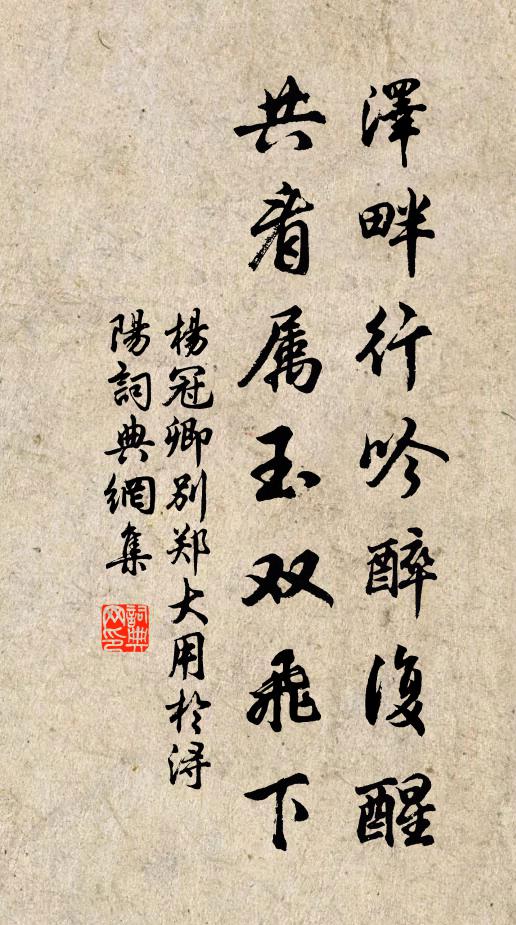 澤畔行吟醉復醒
共看属玉双飛下
楊冠卿别郑大用於浔
陽詞典網集
詞典网印